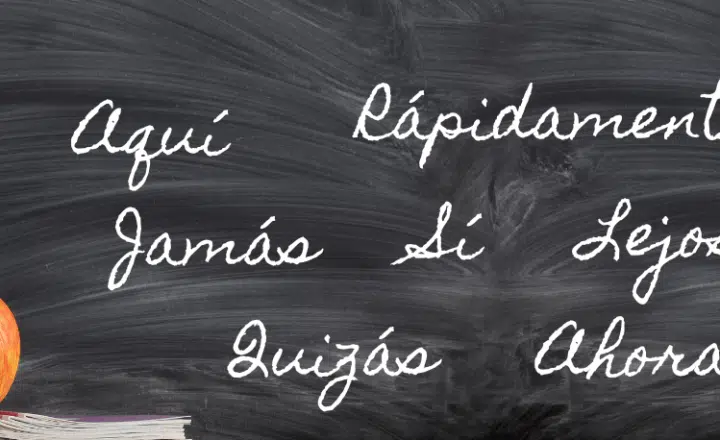 Aquí Rápidament
Jamás Sí Lejos
Quizás Ahora